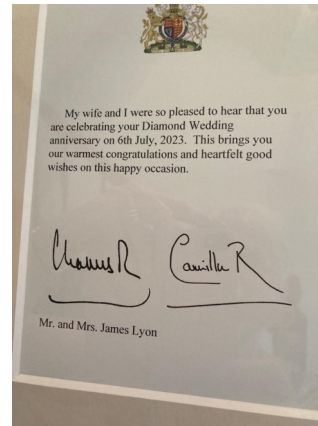 My wife and I were so pleased to hear that you
are celebrating your Diamond Wedding
anniversary on 6th July, 2023. This brings you
our warmest congratulations and heartfelt good
wishes on this happy occasion.
Charles R Camilla R
Mr. and Mrs. James Lyon